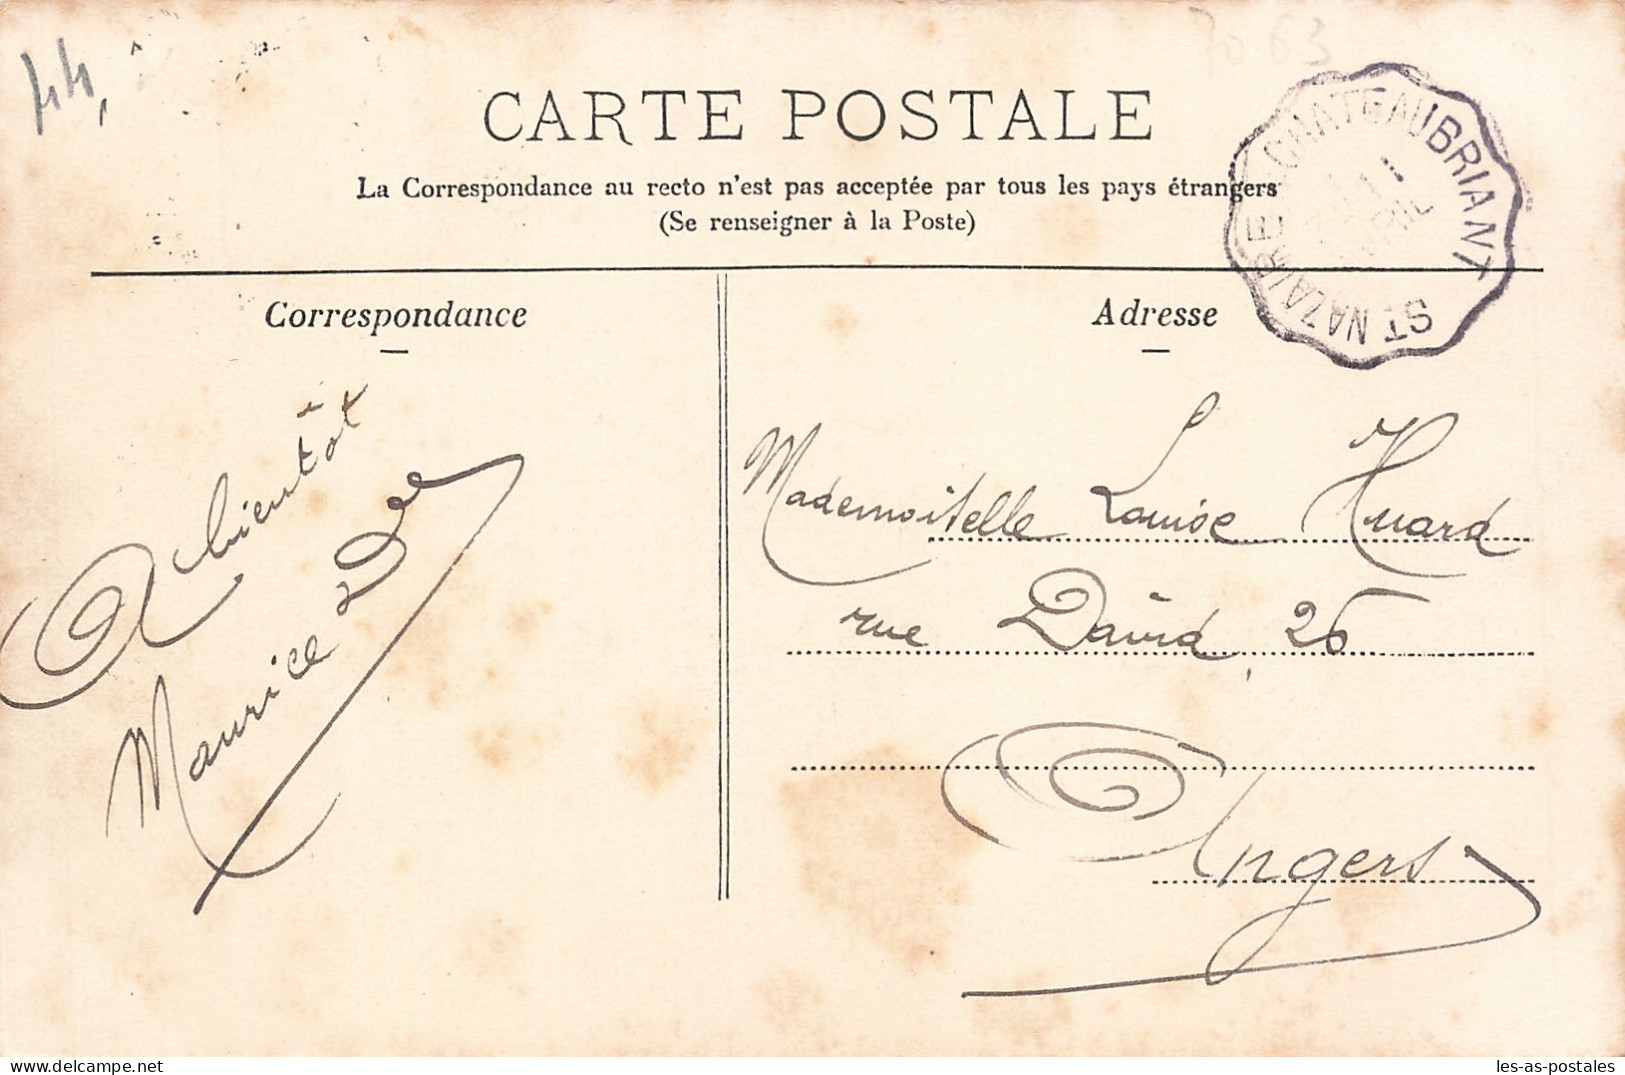 44,
70 63
CARTE POSTALE
La Correspondance au recto n'est pas acceptée par tous les pays étrangers
(Se renseigner à la Poste)
ST NAZAIRE CHATEAUBRIANT
Correspondance
Adresse
A bientôt
Maurice
Mademoiselle Louise Huard
rue David, 26
Angers
delcampe.net
les-as-postales